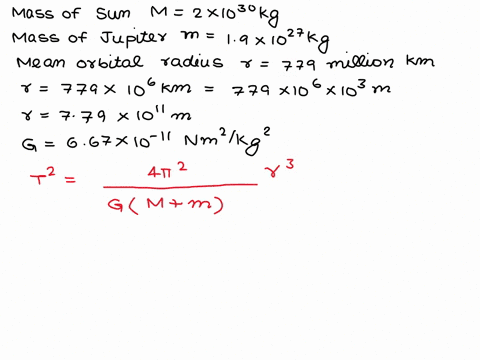 Mass of Sun M = 2×10³⁰kg
Mass of Jupiter m = 1.9×10²⁷kg
Mean orbital radius r = 779 million km
r = 779×10⁶km = 779×10⁶×10³m
r = 7.79×10¹¹m
G = 6.67×10⁻¹¹ Nm²/kg²
T² = 4π² / G(M+m) r³